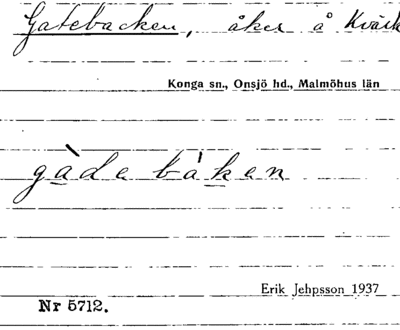 Gatebacken, åker å Kvärk
Konga sn., Onsjö hd., Malmöhus län
gàde bàken
Erik Jehpsson 1937
Nr 5712.